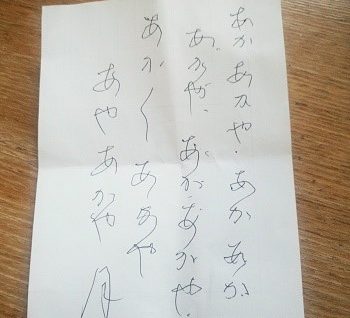 あかあかや あかあか
あかや あかあかや
あか〱あかや
あや あかや 月